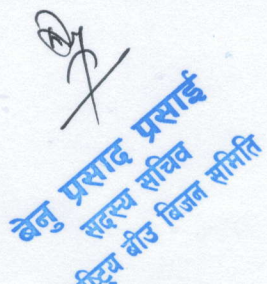 बेनु प्रसाद प्रसाई
सदस्य सचिव
बीउ बिजन समिति